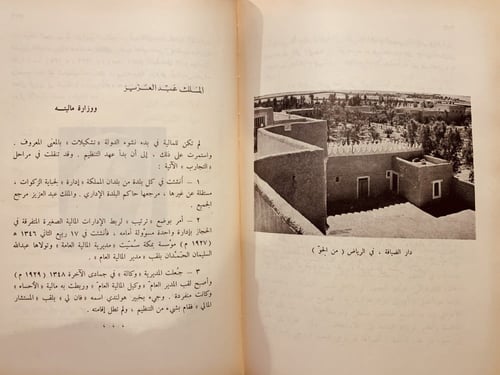 الملك عبد العزيز
ووزارة ماليته
لم تكن للمالية في بدء نشوء الدولة « تشكيلات » بالمعنى المعروف .
واستمرت على ذلك . إلى أن بدأ عهد التنظيم . وقد تنقلت في مراحل
« التجارب » الآتية :
١ – أنشئت في كل بلدة من بلدان المملكة « إدارة » لجباية الزكوات ،
مستقلة عن غيرها ، مرجعها حاكم البلدة الإداري . والملك عبد العزيز مرجع
الجميع .
٢ – أمر بوضع « ترتيب » لربط الإدارات المالية الصغيرة المتفرقة في
الحجاز بإدارة واحدة مسؤولة أمامه . فأنشئت في ١٧ ربيع الثاني ١٣٤٦ هـ
( ١٩٢٧ م ) مؤسسة بمكة سُمّيت « مديرية المالية العامة » وتولاها عبدالله
السليمان الحمدان بلقب « مدير المالية العام » .
٣ – جُعلت المديرية « وكالة » في جمادى الآخرة ١٣٤٨ ( ١٩٢٩ م )
وأصبح لقب المدير العام « وكيل المالية العام » وربطت به مالية « الأحساء »
وكانت منفردة . وجيء بخبير هولندي اسمه « فان لي » بلقب « المستشار
المالي » فقام بشيء من التنظيم ، ولم تطل إقامته .
دار الضيافة ، في الرياض ( من الجوّ )